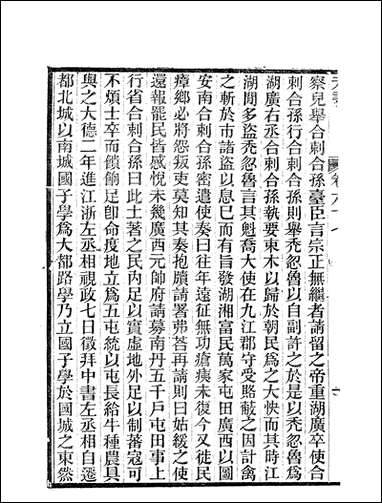 察兒舉合剌合孫臺臣言宗正無繼者請留之帝重湖廣卒使合
剌合孫行合剌合孫則舉禿忽魯以自副許之於是以禿忽魯爲
湖廣右丞合剌合孫執要束木以歸於朝民爲之大快而其時江
湖間多盜禿忽魯言其魁喬大使在九江郡守受賂蔽之因計禽
之斬於市諸盜以息已而有旨發湖湘富民萬家屯田廣西以圖
安南合剌合孫密遣使奏曰往年遠征無功瘡痍未復今又徙民
瘴鄉必將怨叛吏莫知其奏抱牘請署弗荅再請則曰姑緩之使
還報罷民皆感悅未幾廣西元帥府請募南丹五千戶屯田事上
行省合剌合孫曰此土著之民內足以實虛地外足以制蕃寇可
不煩士卒而餽餉足卽命度地立爲五屯統以屯長給牛種農具
與之大德二年進江浙左丞相視政七日徵拜中書左丞相自遷
都北城以南城國子學爲大都路學乃立國子學於國城之東然